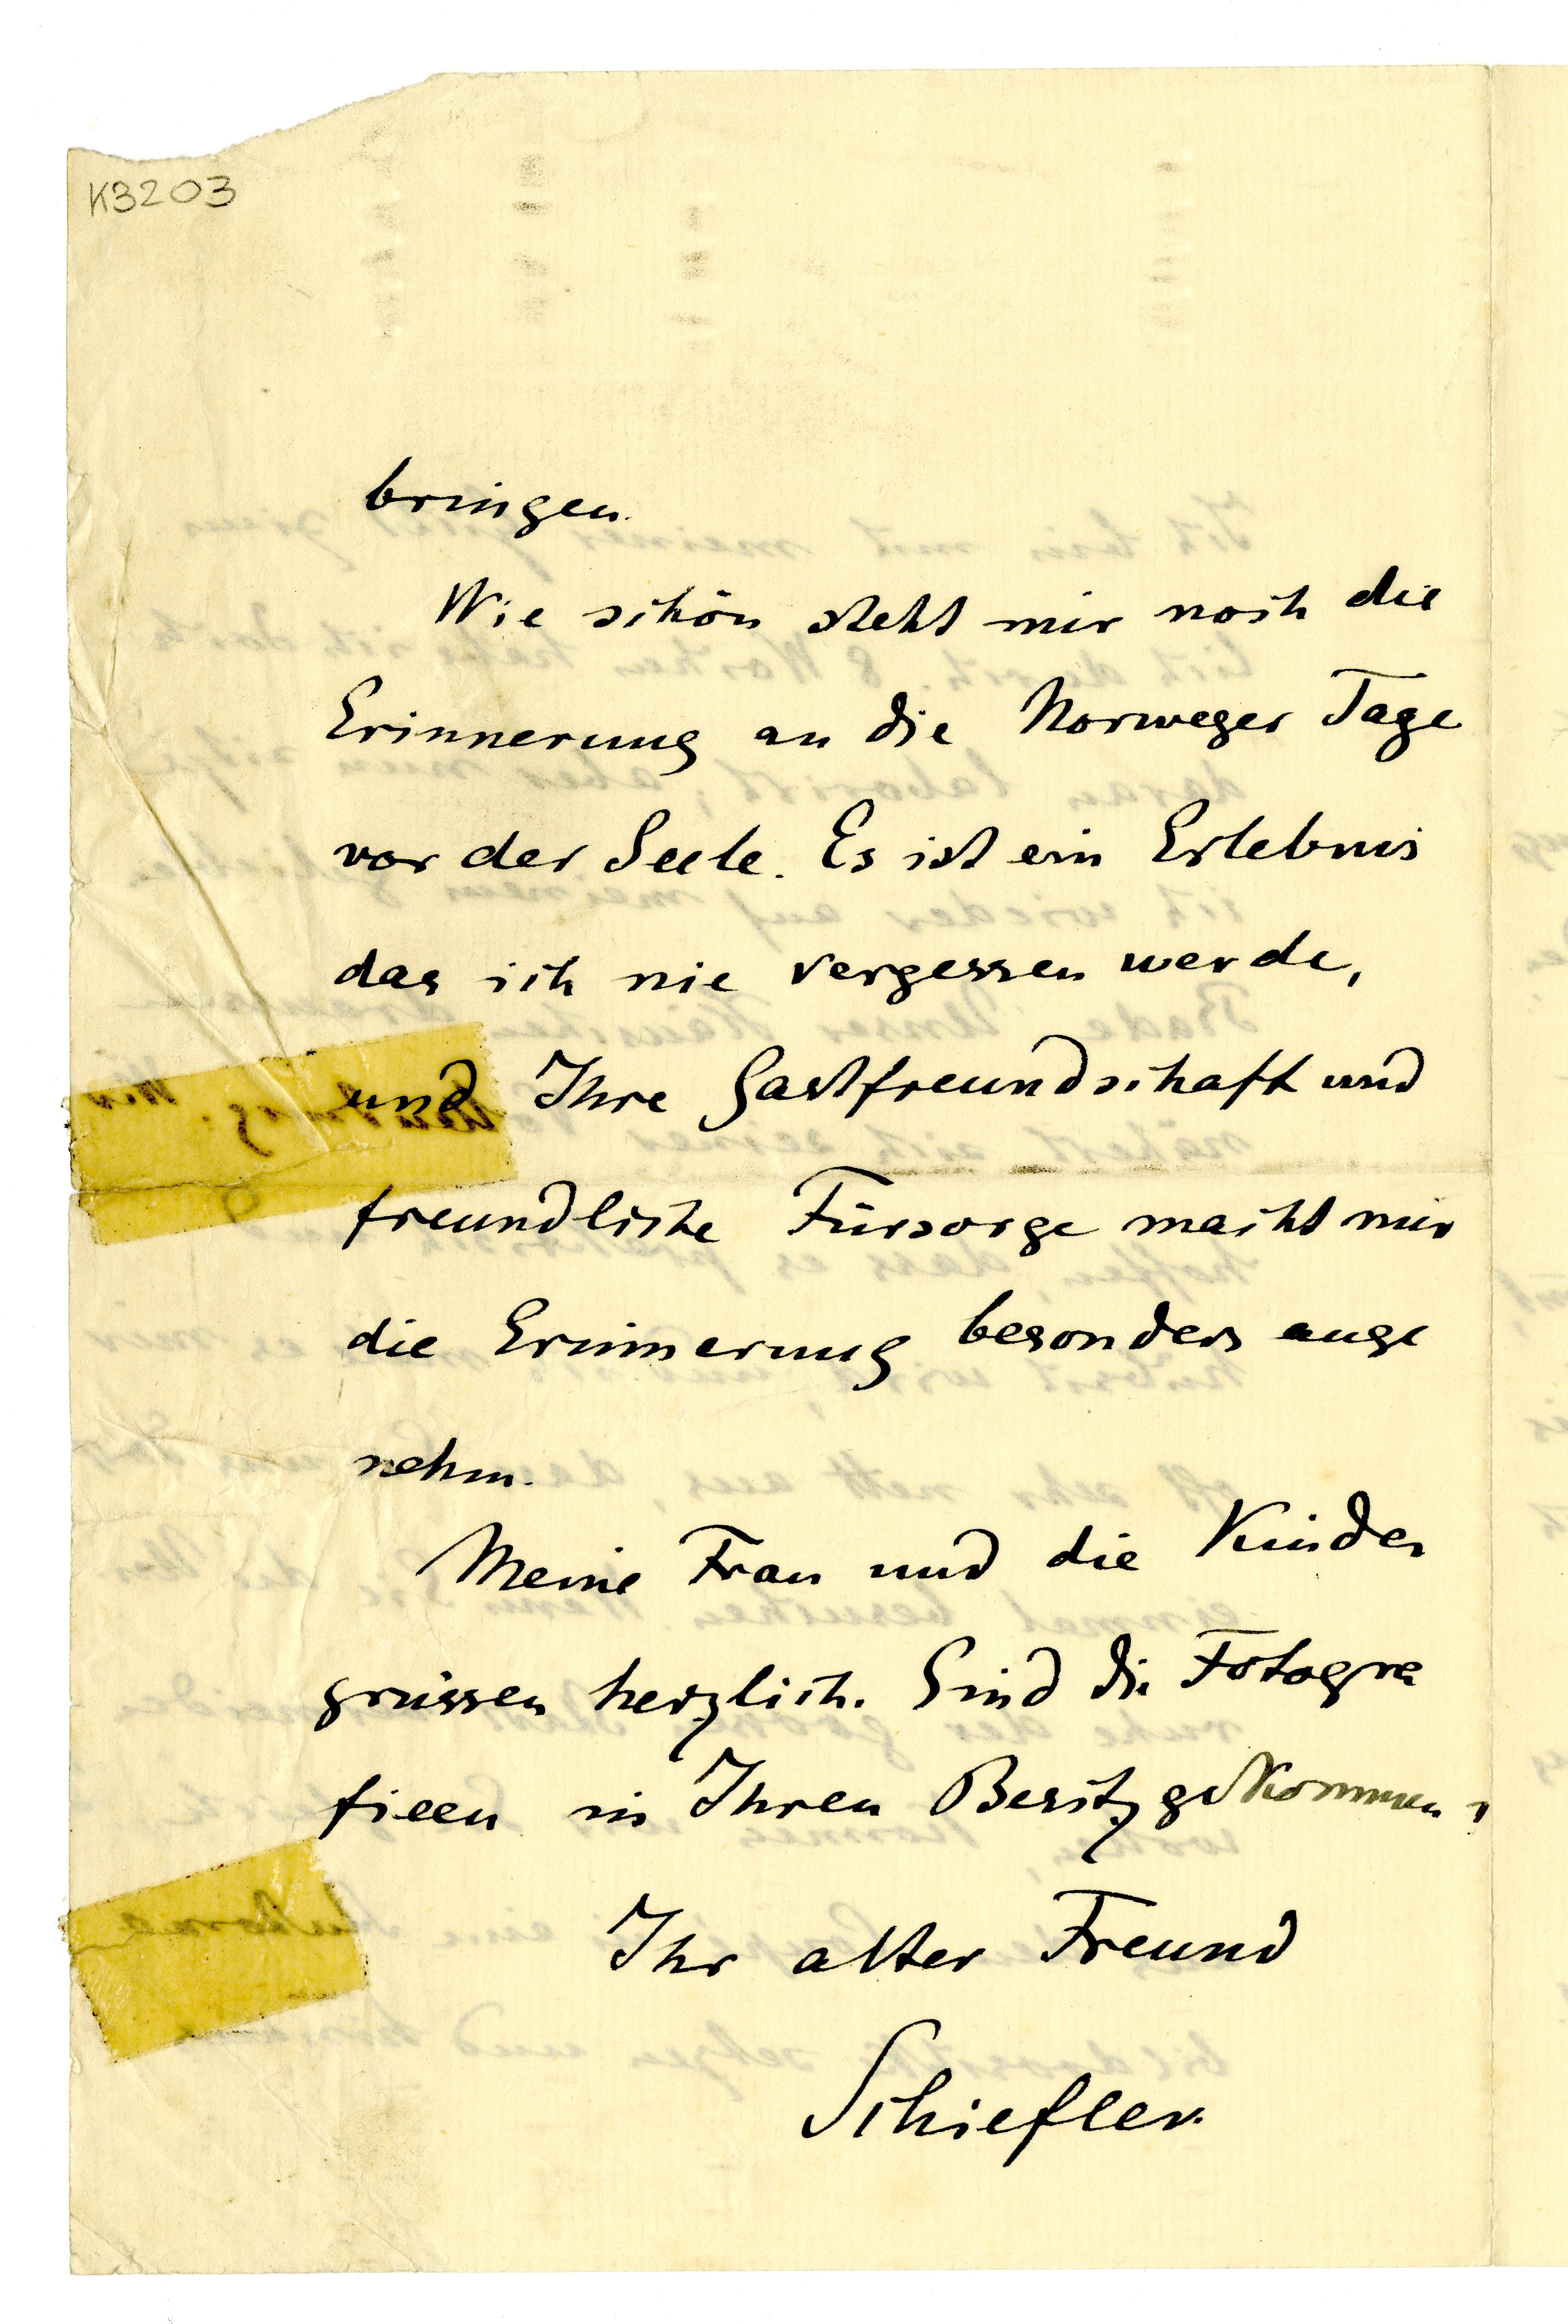 K3203
bringen.
Wie schön steht mir noch die
Erinnerung an die Norweger Tage
vor der Seele. Es ist ein Erlebnis
das ich nie vergessen werde,
und Ihre Gastfreundschaft und
freundliche Fürsorge macht mir
die Erinnerung besonders ange
nehm.
Meine Frau und die Kinder
grüssen herzlich. Sind die Fotogra
fieen in Ihren Besitz gekommen?
Ihr alter Freund
Schiefler.